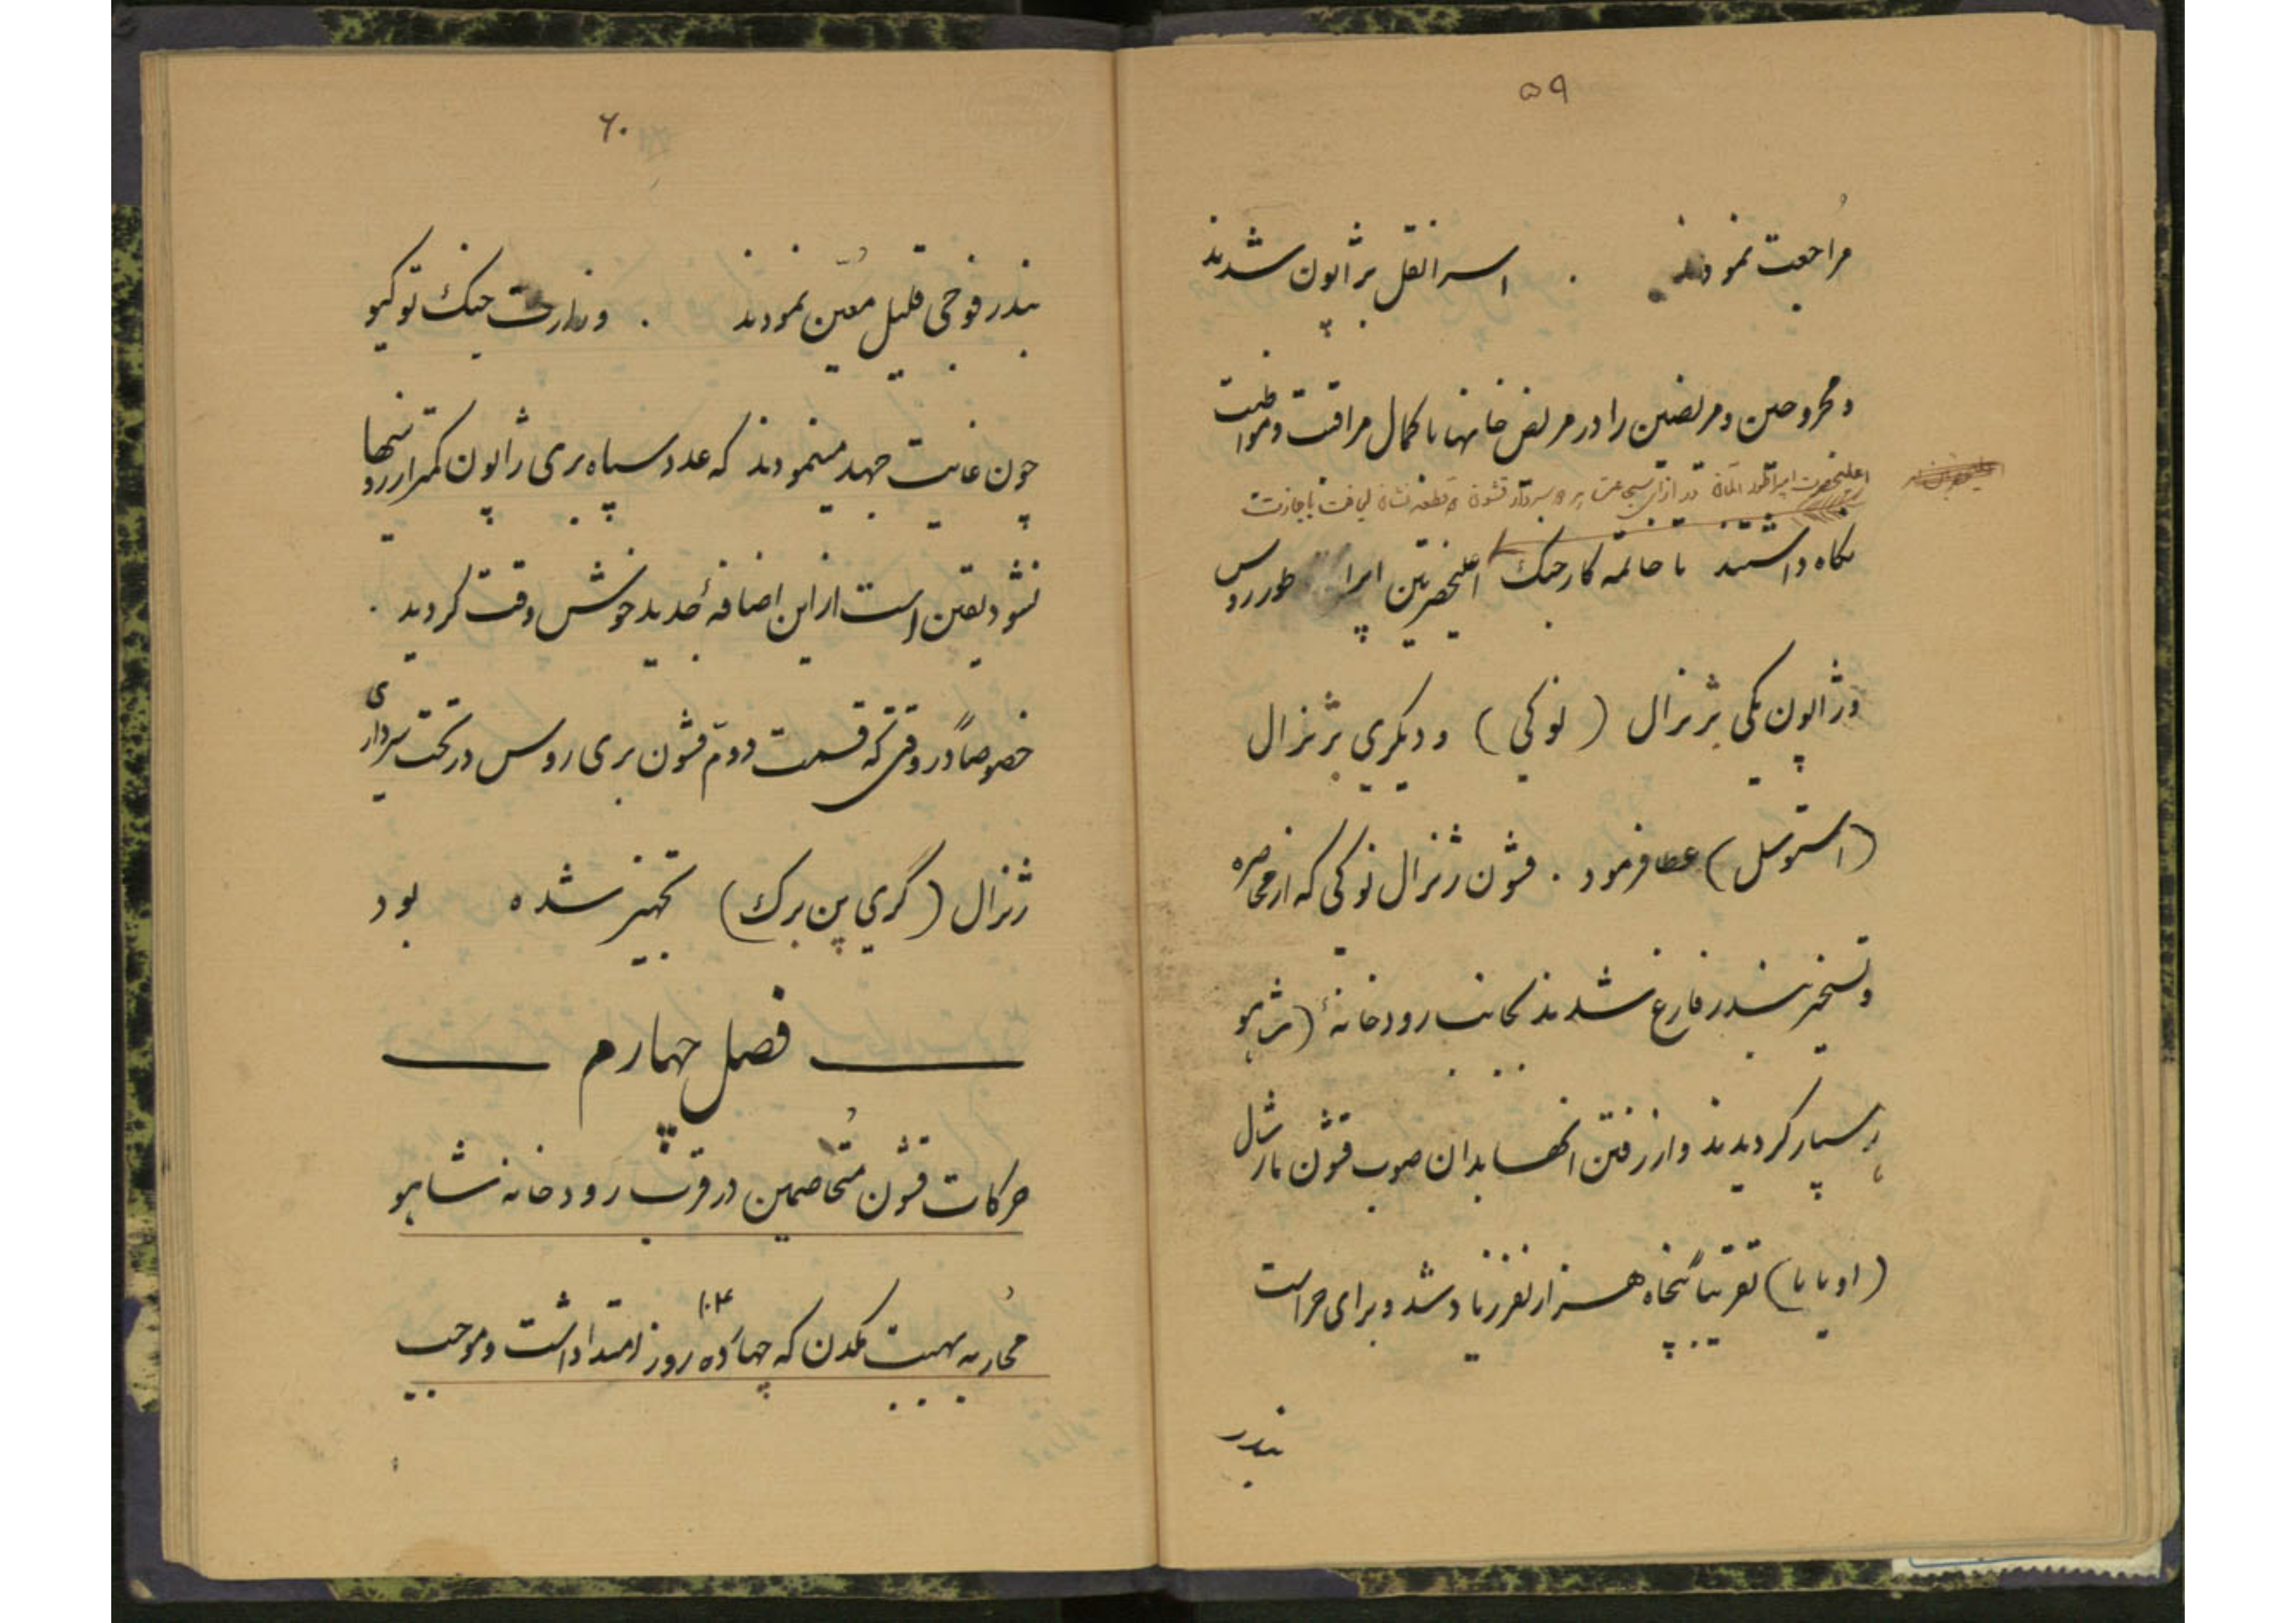 ۵۹
مراجعت نمودند . اسرا نقل بژاپون شدند
و مجروحین و مریضین را در مریض خانها با کمال مراقبت و مواظبت
اعلیحضرت امپراطور آلمان در ازای شجاعت هر دو سردار قشون دو قطعه نشان لیاقت با اجازت
نگاه داشتند تا خاتمه کار جنک اعلیحضرتین امپراطور روس
و ژاپون یکی بژنرال (نوکی) و دیگری بژنرال
(استوسل) عطا فرمود . قشون ژنرال نوکی که از محاصره
و تسخیر بندر فارغ شدند بجانب رودخانهٔ (شاهو)
رهسپار کردیدند و از رفتن انها بدان صوب قشون مارشال
(اویاما) تقریباً پنجاه هزار نفر زیاد شد و برای حراست
بندر
۶۰
بندر فوجی قلیل معین نمودند . وزارت جنک توکیو
چون غایت جهد مینمودند که عدد سپاه بری ژاپون کمتر از روسها
نشود یقین است از این اضافهٔ جدید خوش وقت کردید .
خصوصاً در وقتی که قسمت دوم قشون بری روس در تحت سرداری
ژنرال (گری پن برک) تجهیز شده بود
فصل چهارم
حرکات قشون متخاصمین در قرب رودخانه شاهو
محاربه مهیب مکدن که چهارده روز امتداد داشت و موجب